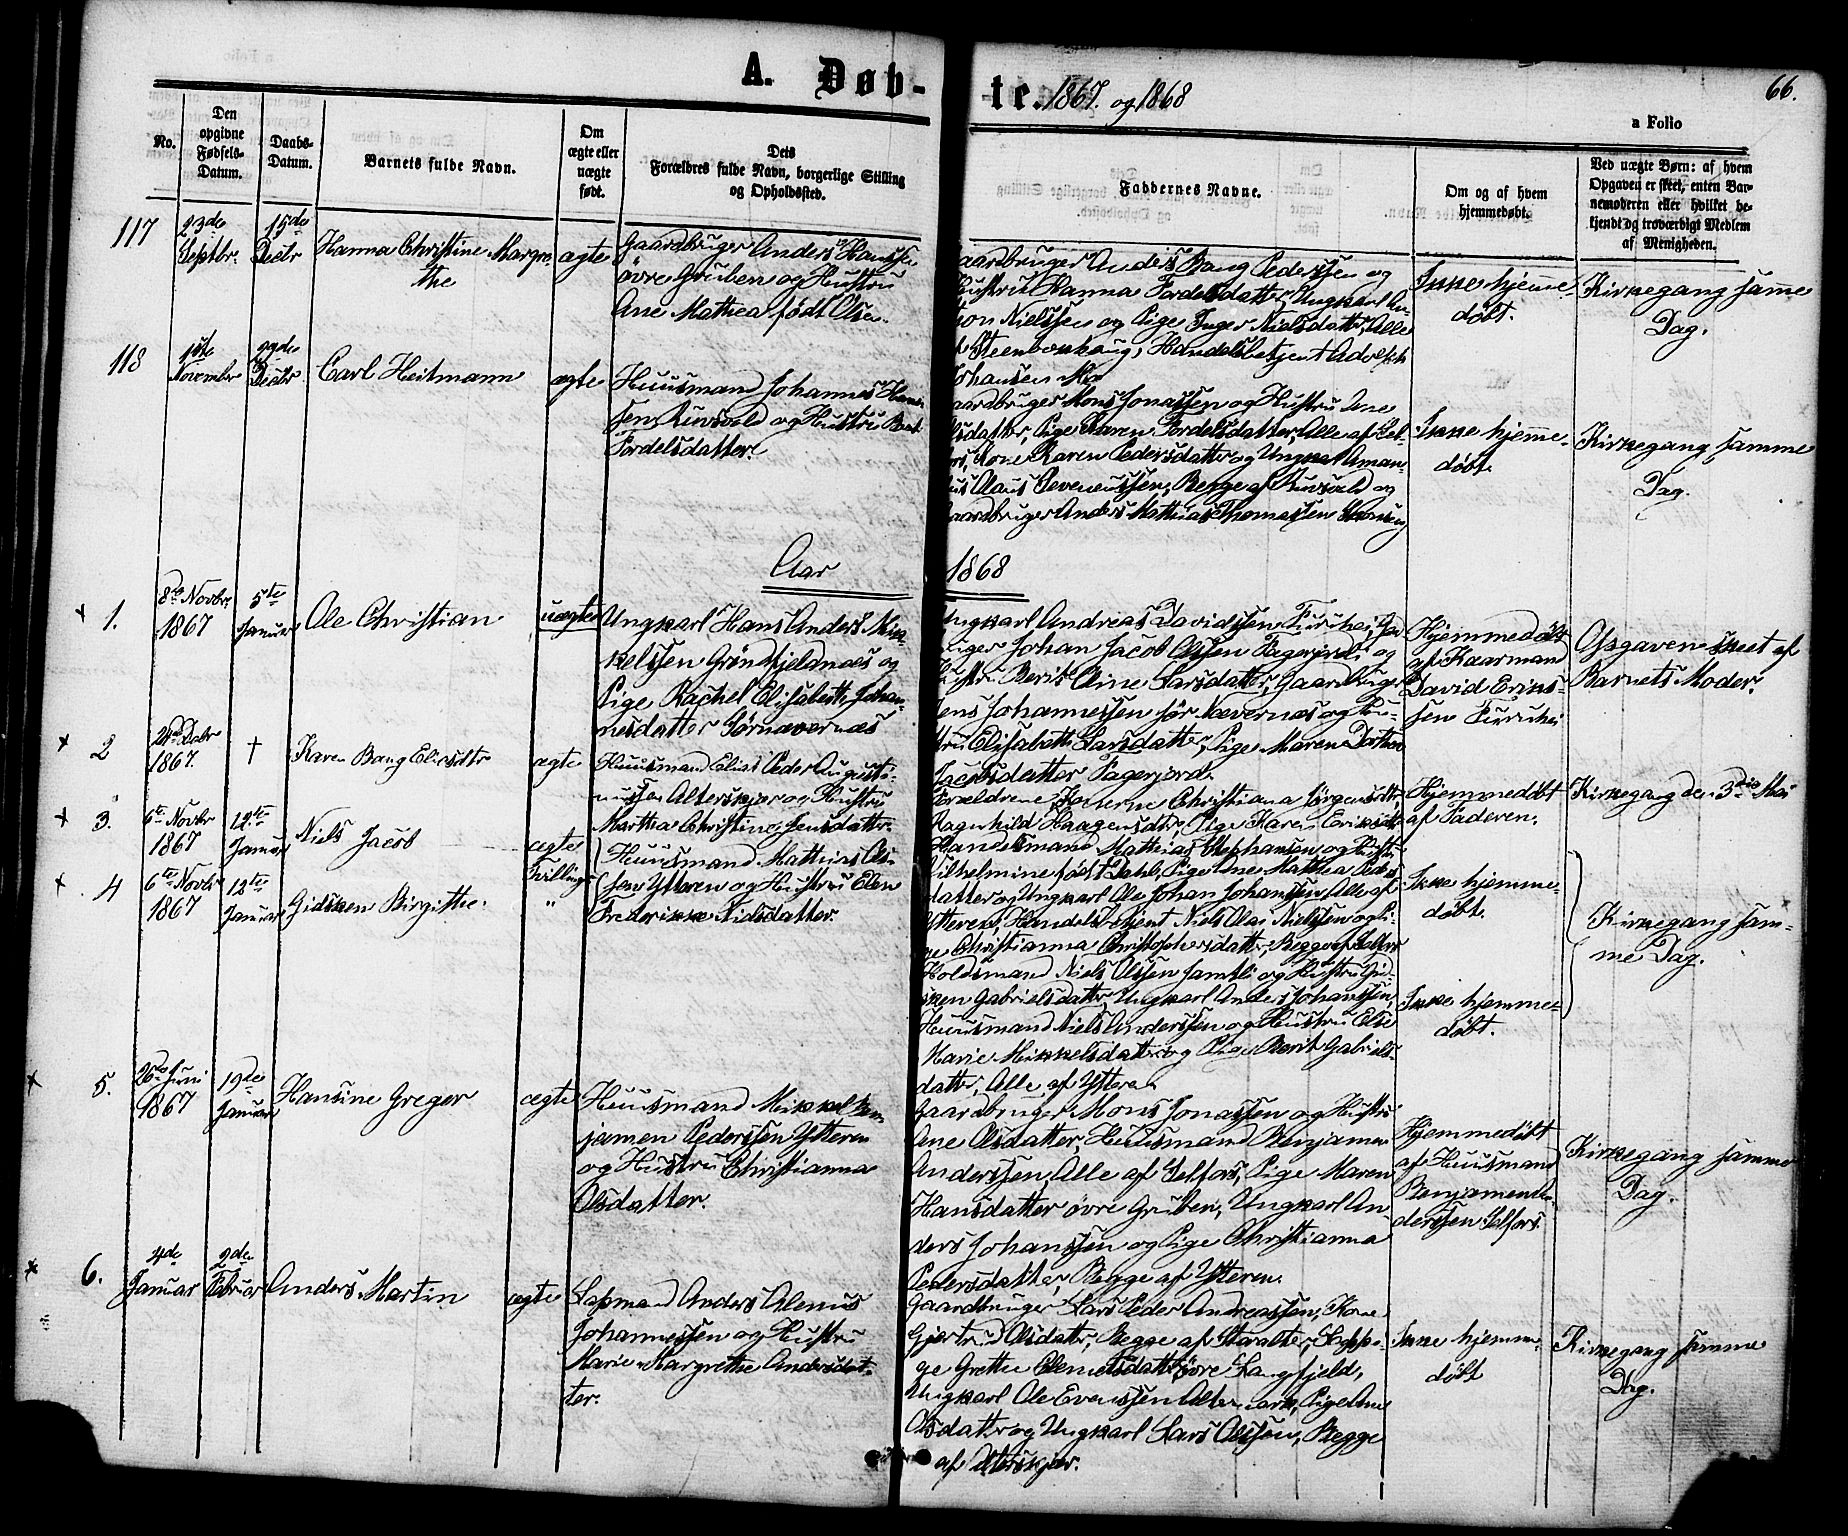 A. Døb-te. 1867. og 1868
66.
a Folio
No.
Den opgivne Fødsels-Datum.
Daabs-Datum.
Barnets fulde Navn.
Om ægte eller uægte født.
Dets Forældres fulde Navn, borgerlige Stilling og Opholdssted.
Faddernes Navne.
Om og af hvem hjemmedøbt.
Ved uægte Børn: af hvem Opgaven er skeet, enten Barnemoderen eller hvilket bekjendt og troværdigt Medlem af Menigheden.
117
23de Septbr.
15de Decbr
Hanna Christine Margrethe
ægte
Gaardbruger Anders Hanssen
øvre Gruben og Hustru
Ane Mathea født Olsen.
aardbruger Anders Bang Pederssen og
Hustru Hanna Fordelsdatter, Ungkarl An-
ton Nielssen og Pige Inger Nielsdatter, Alle
Steenboehaug, Handelsbetjent Adolph
Johansen Mo
Ikke hjemme-
døbt.
Kirkegang samme
Dag.
118
1ste November
29de Decbr
Carl Heitmann
ægte
Huusmand Johannes
sen Ruusvold og Hustru
Fordelsdatter.
aardbruger Mons Jonassen og Hustru Ane
lsdatter, Pige Karen Fordelsdatter, Alle af Sel-
fors, Kone Karen Pedersdatter og Ungkarl Aman-
dus Olaus Severeussen, Begge af Ruusvold og
Gaardbruger Anders Mathias Thomassen
Ikke hjemme-
døbt.
Kirkegang samme
Dag.
Aar 1868
1.
8de Novbr. 1867
5te Januar
Ole Christian
uægte
Ungkarl Hans Anders Mik-
kelssen Grønfjeldnæs og
Pige Rachel Elisabeth Johan-
nesdatter Sørnævernæs
Ungkarl Andreas Davidssen Furuhei,
Johan Jacob Olssen Fagerjord og
Hustru Berit Aine Larsdatter, Gaardbruger
Jens Johannessen sør Nævernæs og Hu-
stru Elisabeth Larsdatter, Pige Maren Dorthea
Jacobsdatter Fagerjord.
Hjemmedøbt
af Kaarmand
David Eriks-
sen Furuhei
Opgaven skeet af
Barnets Moder.
2
24de Decbr 1867.
†
Karen Bang Eliasdtr
ægte
Huusmand Elias Peder Augusti-
nussen Alterskjær og Hustru
Martha Christine Jensdatter.
Forældrene, Konerne Christiana Jørgensdtr,
Ragnhild Haagensdtr, Pige Karen Eriksdtr
Hjemmedøbt
af Faderen.
Kirkegang den 3die Mai
3.
6te Novbr 1867
12te Januar
Niels Jacob
ægte
Tvillinger
Huusmand Mathias Ol-
sen Ytteren og Hustru Elen
Frederikke Nilsdatter.
Handelsmand Mathias Stephansen og Hustru
Vilhelmine født Dahl, Pige Ane Mathea Peders-
datter og Ungkarl Ole Johan Johansen, Alle af
Ytteren, Handelsbetjent Niels Olai Nielssen og Pi-
ge Christianna Christophersdatter, Begge af Selfors
Ikke hjemme-
døbt.
Kirkegang sam-
me Dag.
4
6te Novbr 1867
12te Januar
Gidsken Birgitthe.
"
Holdsmand Niels Olssen Jamtli og Hustru Gid-
sken Gabrielsdatter, Ungkarl Anders Johanssen,
Huusmand Niels Anderssen og Hustru Else
Marie Mikkelsdatter og Pige Berit Gabriels-
datter, Alle af Ytteren
Ikke hjemme-
døbt.
5.
26de Juni 1867
19de Januar
Hansine Greger
ægte
Huusmand Mikkel Ben-
jamen Pederssen Ytteren
og Hustru Christianna
Olsdatter.
Gaardbruger Mons Jonassen og Hustru
Ane Olsdatter, Huusmand Benjamen
Anderssen, Alle af Selfors, Pige Maren
Hansdatter øvre Gruben, Ungkarl An-
ders Johanssen og Pige Christianna
Pedersdatter, Begge af Ytteren.
Hjemmedøbt
af Huusmand
Benjamen An-
derssen Selfors.
Kirkegang samme
Dag.
6.
4de Januar
2den Februar
Anders Martin
ægte
Lapmand Anders Alenius
Johannessen og Hustru
Marie Margrethe Andersdat-
ter.
Gaardbruger Lars Peder Andreassen, Kone
Gjertrud Olsdatter, Begge af Storalter, Lappi-
ge Grethe Clemetsdatter øvre Langfjeld,
Ungkarl Ole Evenssen Altermark, Pige Ane
Olsdatter og Ungkarl Lars Olssen, Begge
af Alterskjær.
Ikke hjemme-
døbt
Kirkegang samme
Dag.